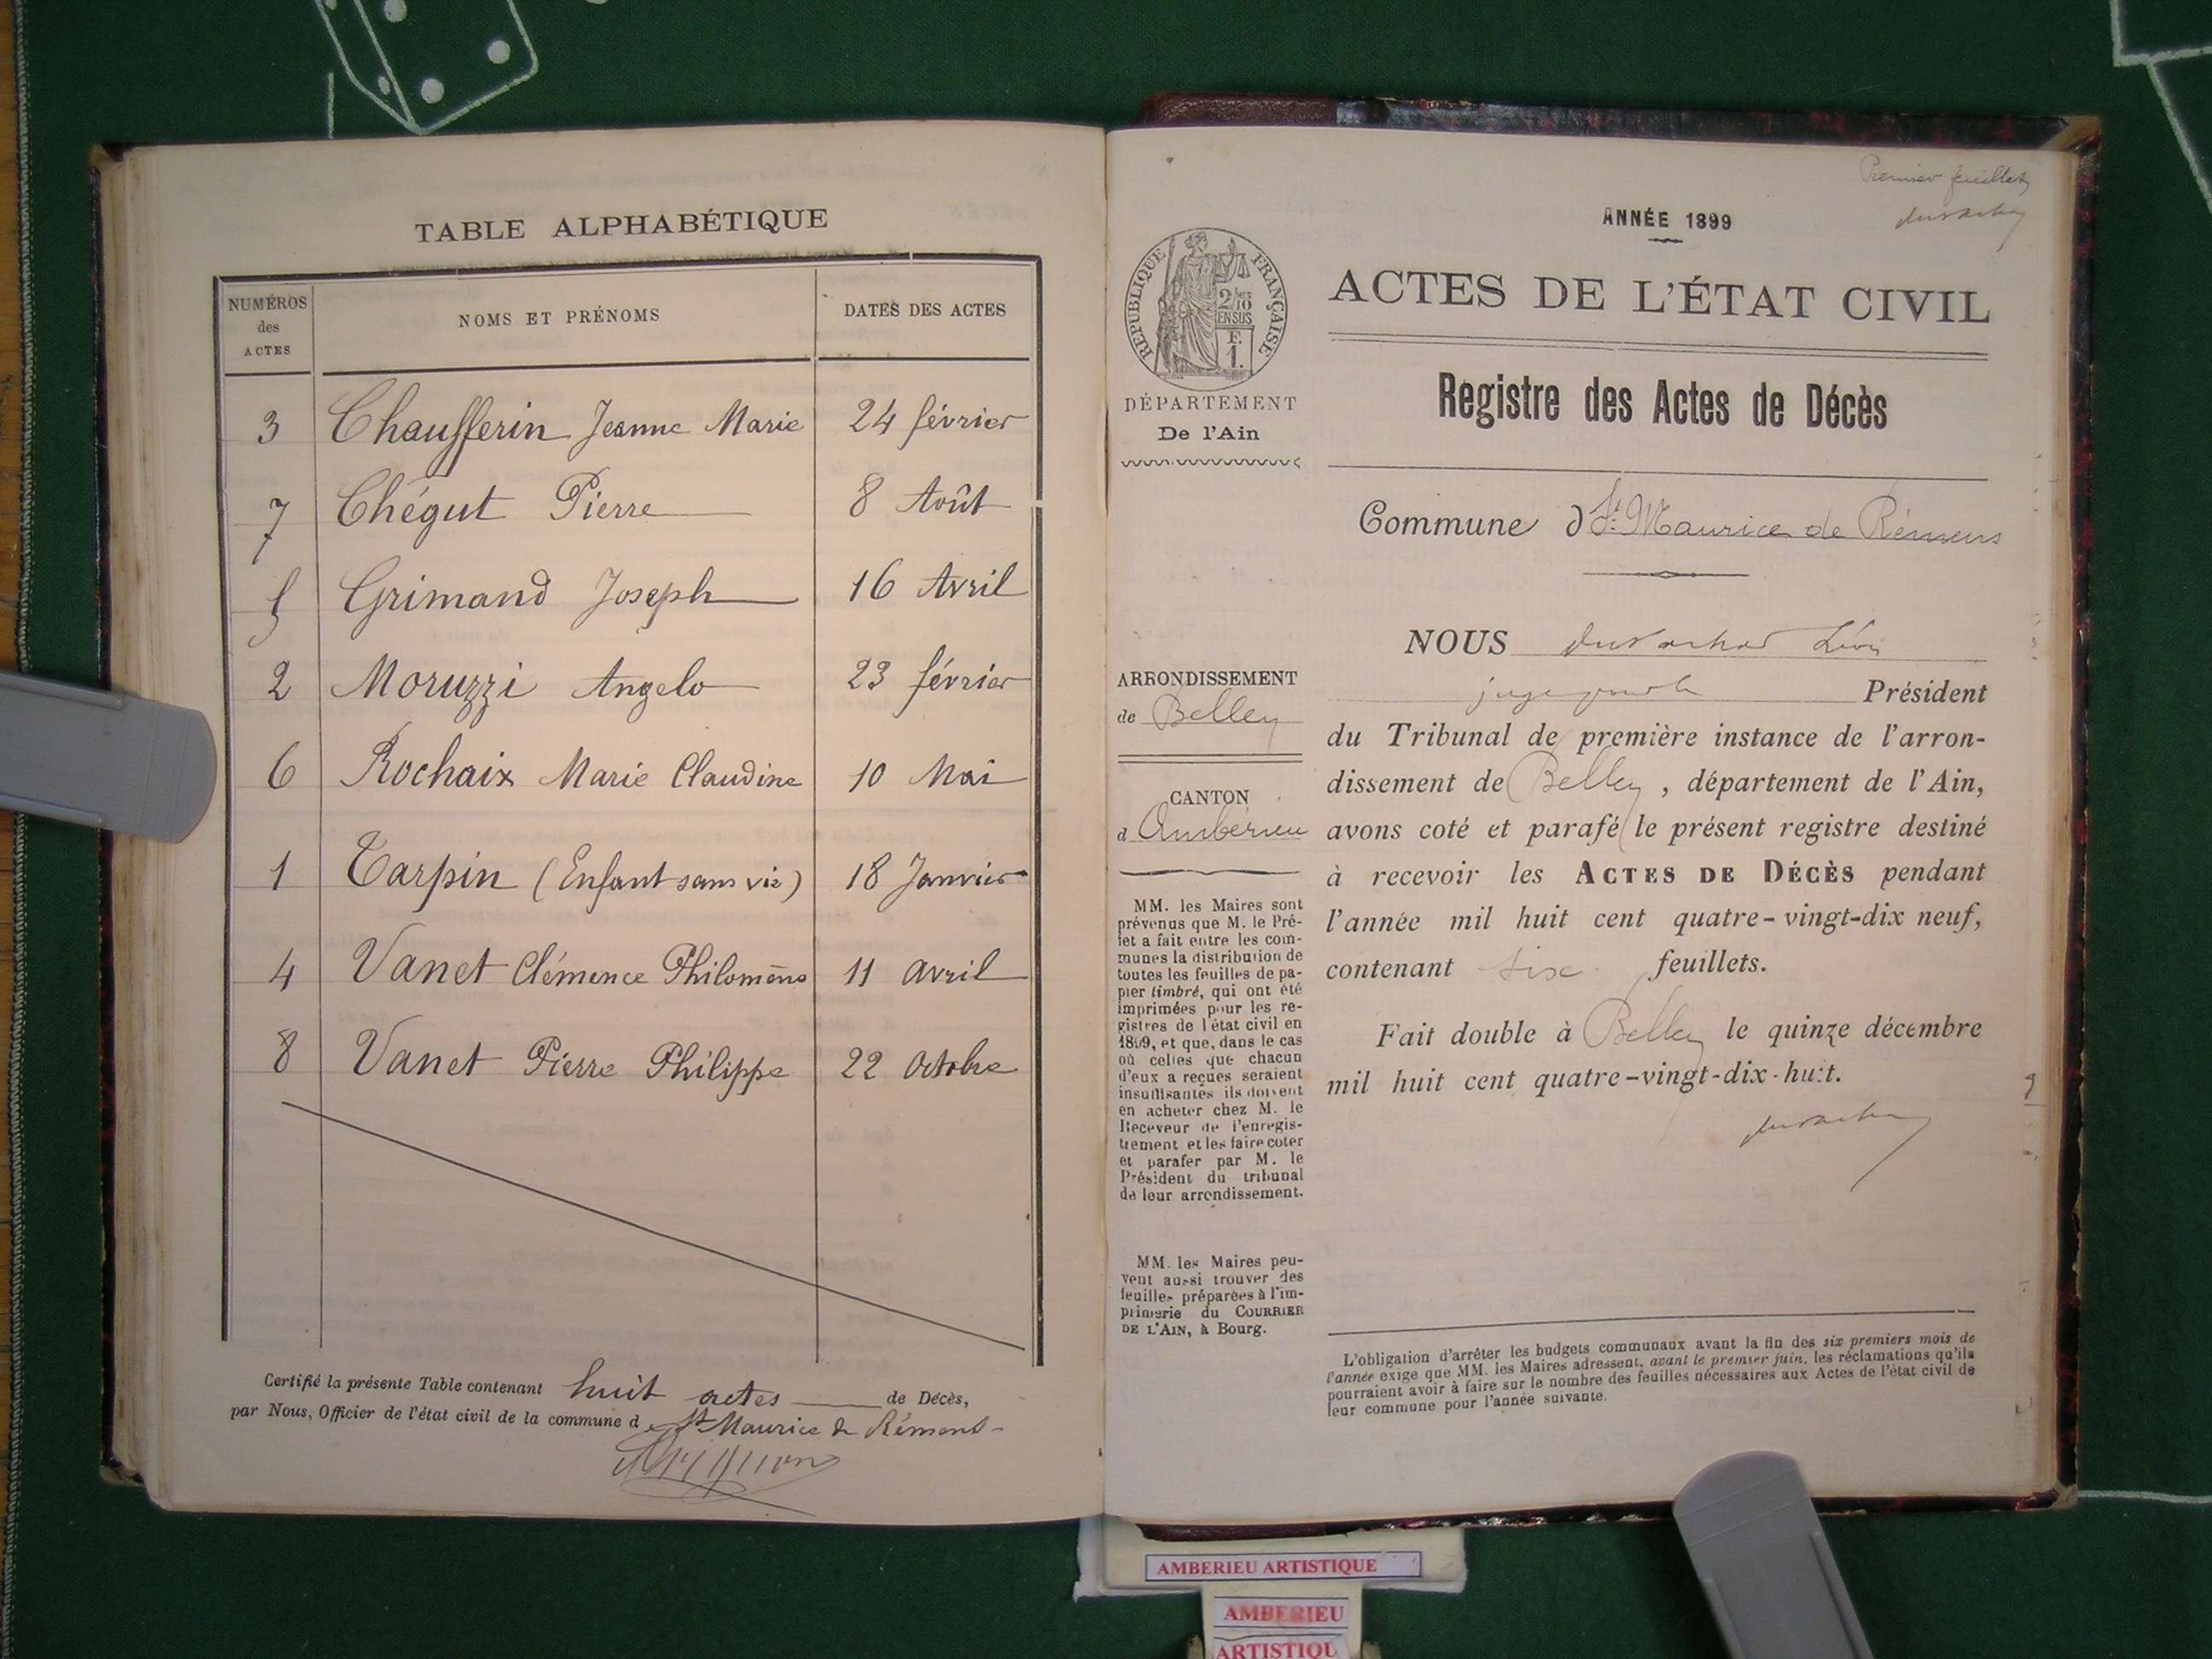 TABLE ALPHABÉTIQUE
NUMÉROS des ACTES
NOMS ET PRÉNOMS
DATES DES ACTES
3 Chaufferin Jeanne Marie 24 février
7 Chégut Pierre 8 Août
5 Grimand Joseph 16 Avril
2 Moruzzi Angelo 23 février
6 Rochaix Marie Claudine 10 Mai
1 Tarpin (Enfant sans vie) 18 Janvier
4 Vanet Clémence Philomène 11 avril
8 Vanet Pierre Philippe 22 Octobre
Certifié la présente Table contenant huit actes de Décès,
par Nous, Officier de l'état civil de la commune de St Maurice de Rémens
Premier feuillet
ANNÉE 1899
RÉPUBLIQUE FRANÇAISE
2/10 EN SUS
F. 1.
ACTES DE L'ÉTAT CIVIL
DÉPARTEMENT
De l'Ain
Registre des Actes de Décès
Commune d St Maurice de Rémens
ARRONDISSEMENT
de Belley
CANTON
d Ambérieu
MM. les Maires sont
prévenus que M. le Pré-
fet a fait entre les com-
munes la distribution de
toutes les feuilles de pa-
pier timbré, qui ont été
imprimées pour les re-
gistres de l'état civil en
1899, et que, dans le cas
où celles que chacun
d'eux a reçues seraient
insuffisantes ils doivent
en acheter chez M. le
Receveur de l'enregis-
trement et les faire coter
et parafer par M. le
Président du tribunal
de leur arrondissement.
MM. les Maires peu-
vent aussi trouver des
feuilles préparées à l'im-
primerie du COURRIER
DE L'AIN, à Bourg.
NOUS
Président
du Tribunal de première instance de l'arron-
dissement de Belley, département de l'Ain,
avons coté et parafé le présent registre destiné
à recevoir les ACTES DE DÉCÈS pendant
l'année mil huit cent quatre-vingt-dix neuf,
contenant six feuillets.
Fait double à Belley le quinze décembre
mil huit cent quatre-vingt-dix-huit.
L'obligation d'arrêter les budgets communaux avant la fin des six premiers mois de
l'année exige que MM. les Maires adressent, avant le premier juin, les réclamations qu'ils
pourraient avoir à faire sur le nombre des feuilles nécessaires aux Actes de l'état civil de
leur commune pour l'année suivante.
AMBERIEU ARTISTIQUE
AMBERIEU
ARTISTIQU